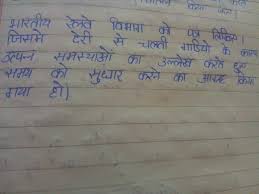 भारतीय रेलवे विभाग को पत्र लिखिए।
जिसमे देरी से चलती गाडियो के कारण
उत्पन समस्याओं का उल्लेख करते हुए
समय को सुधार करने का आग्रह किया
गया हो)